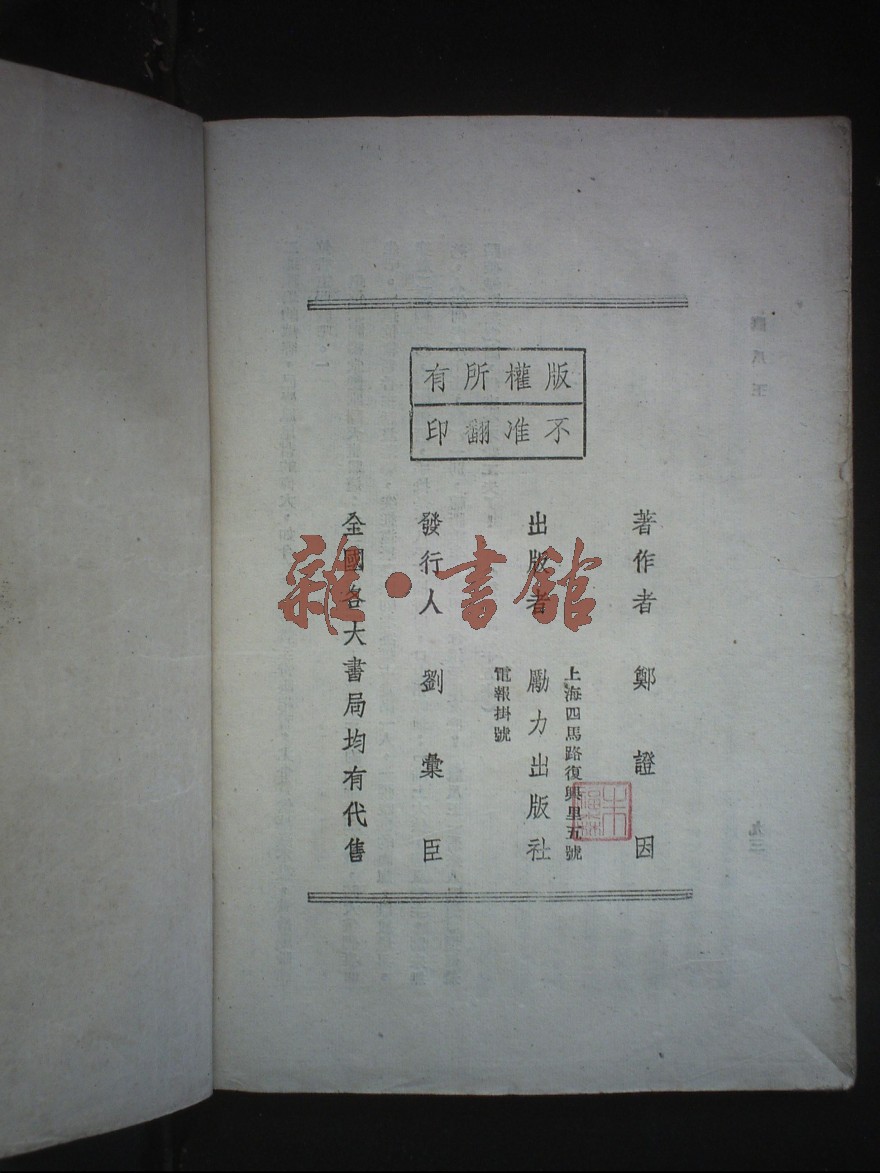 版權所有
不准翻印
著作者 鄭證因
上海四馬路復興里五號
出版者 勵力出版社
電報掛號
發行人 劉彙臣
全國各大書局均有代售
雜·書館